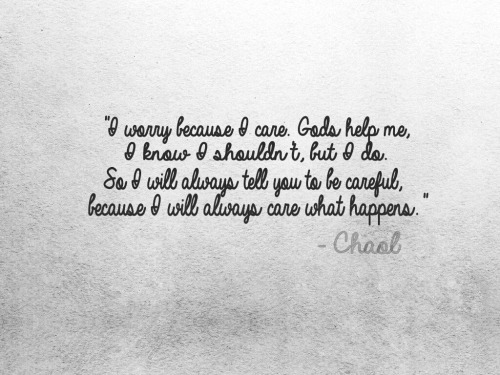 "I worry because I care. Gods help me,
I know I shouldn't, but I do.
So I will always tell you to be careful,
because I will always care what happens."
- Chaol